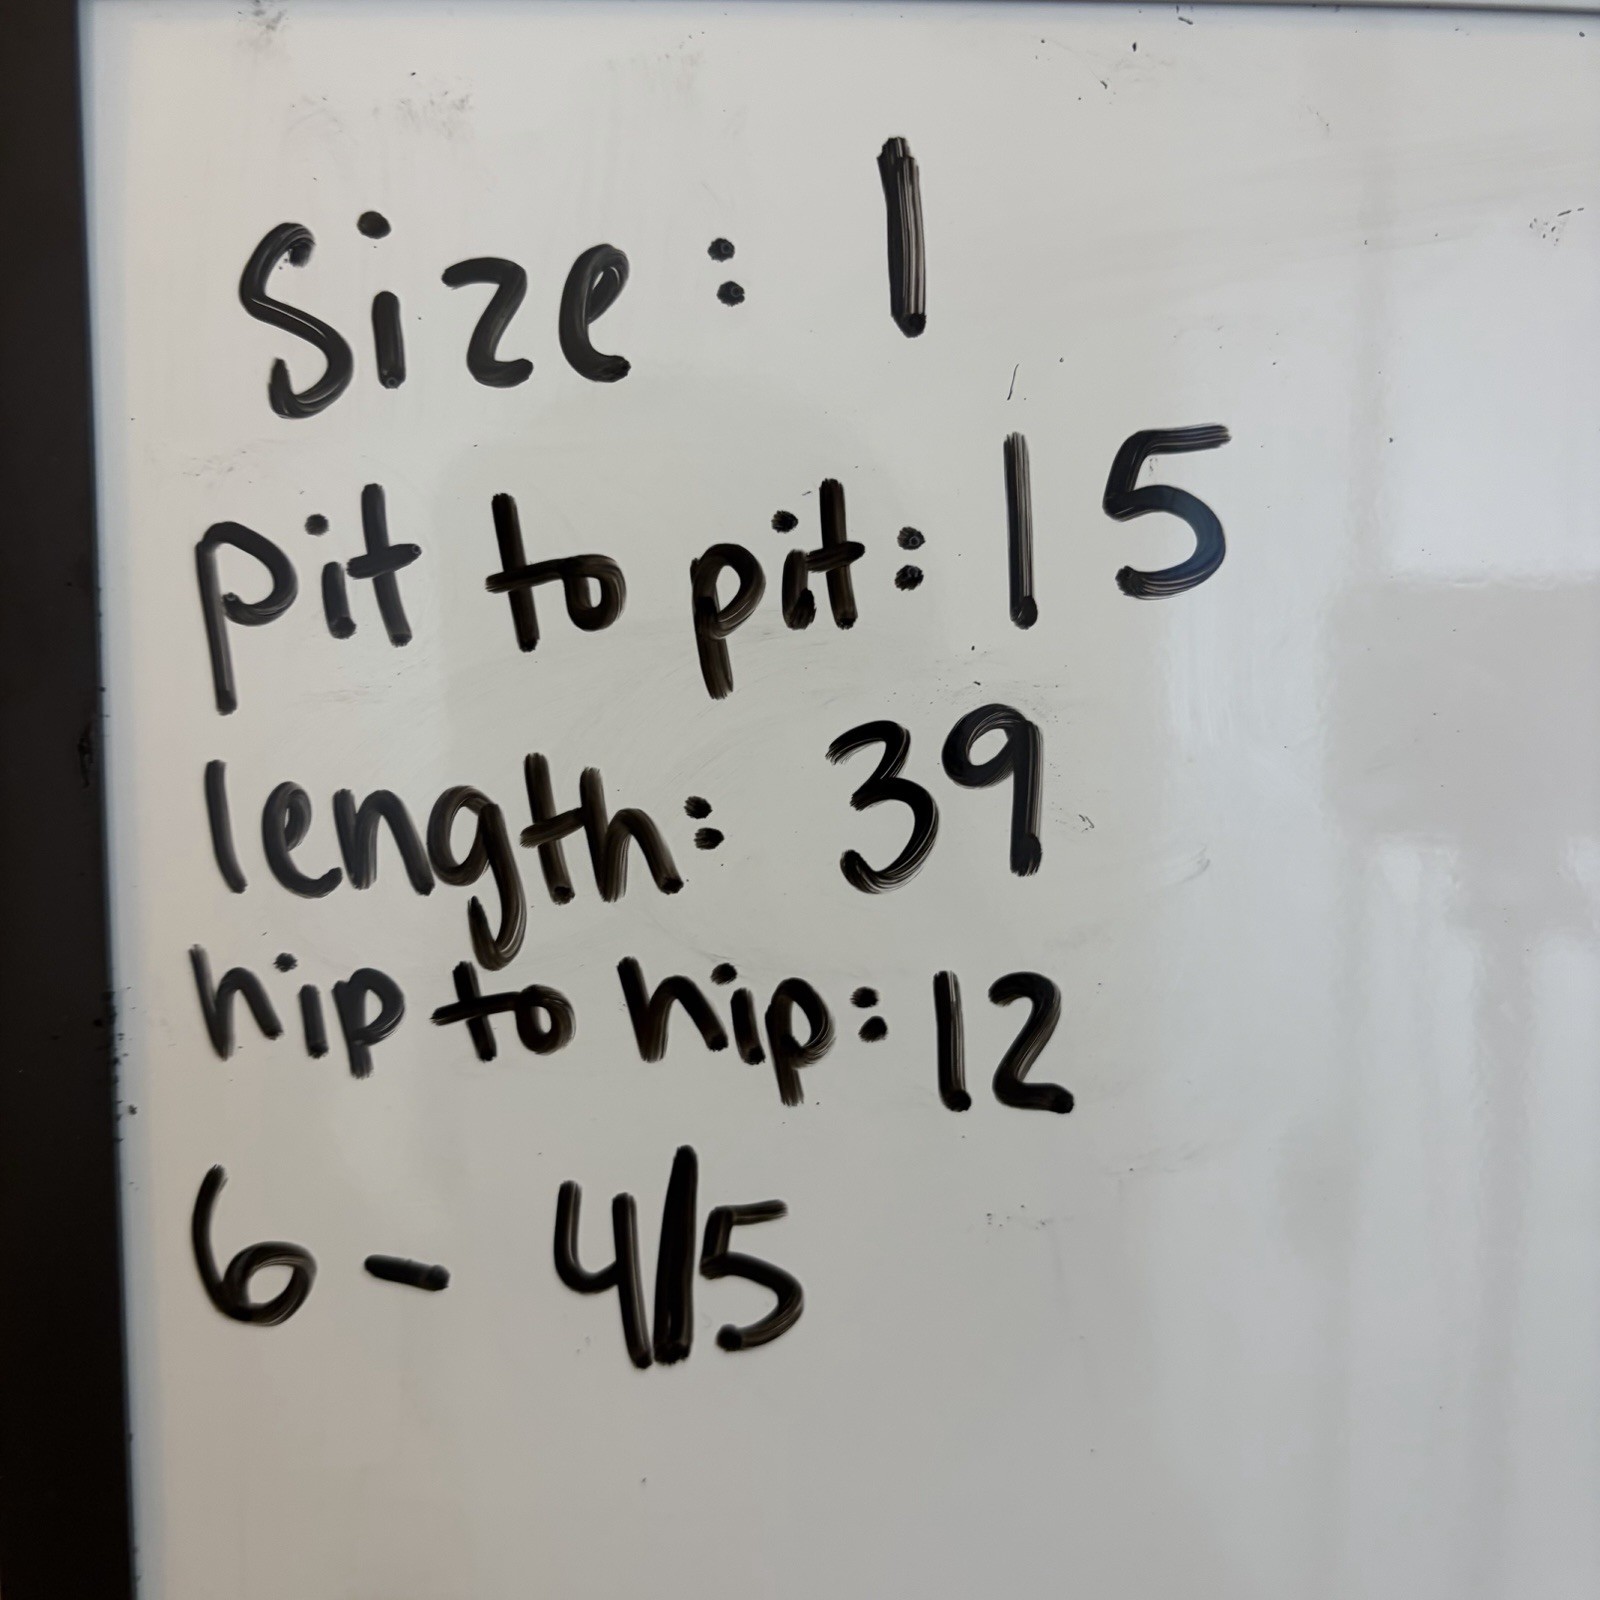 Size: 1
pit to pit: 15
length: 39
hip to hip: 12
6 - 4/5